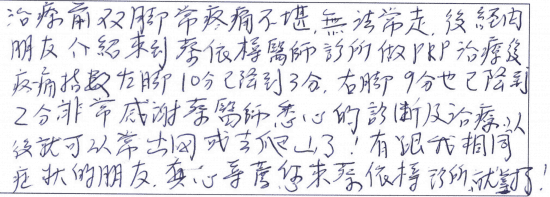 治療前双腳常疼痛不堪,無法常走,後經由
朋友介紹來到蔡依樺醫師診所做PRP治療後
疼痛指數左腳10分已降到3分,右腳9分也已降到
2分非常感謝蔡醫師悉心的診断及治療,以
後就可以常出国或去爬山了!有跟我相同
症狀的朋友,真心推薦您來蔡依樺診所,就對了!